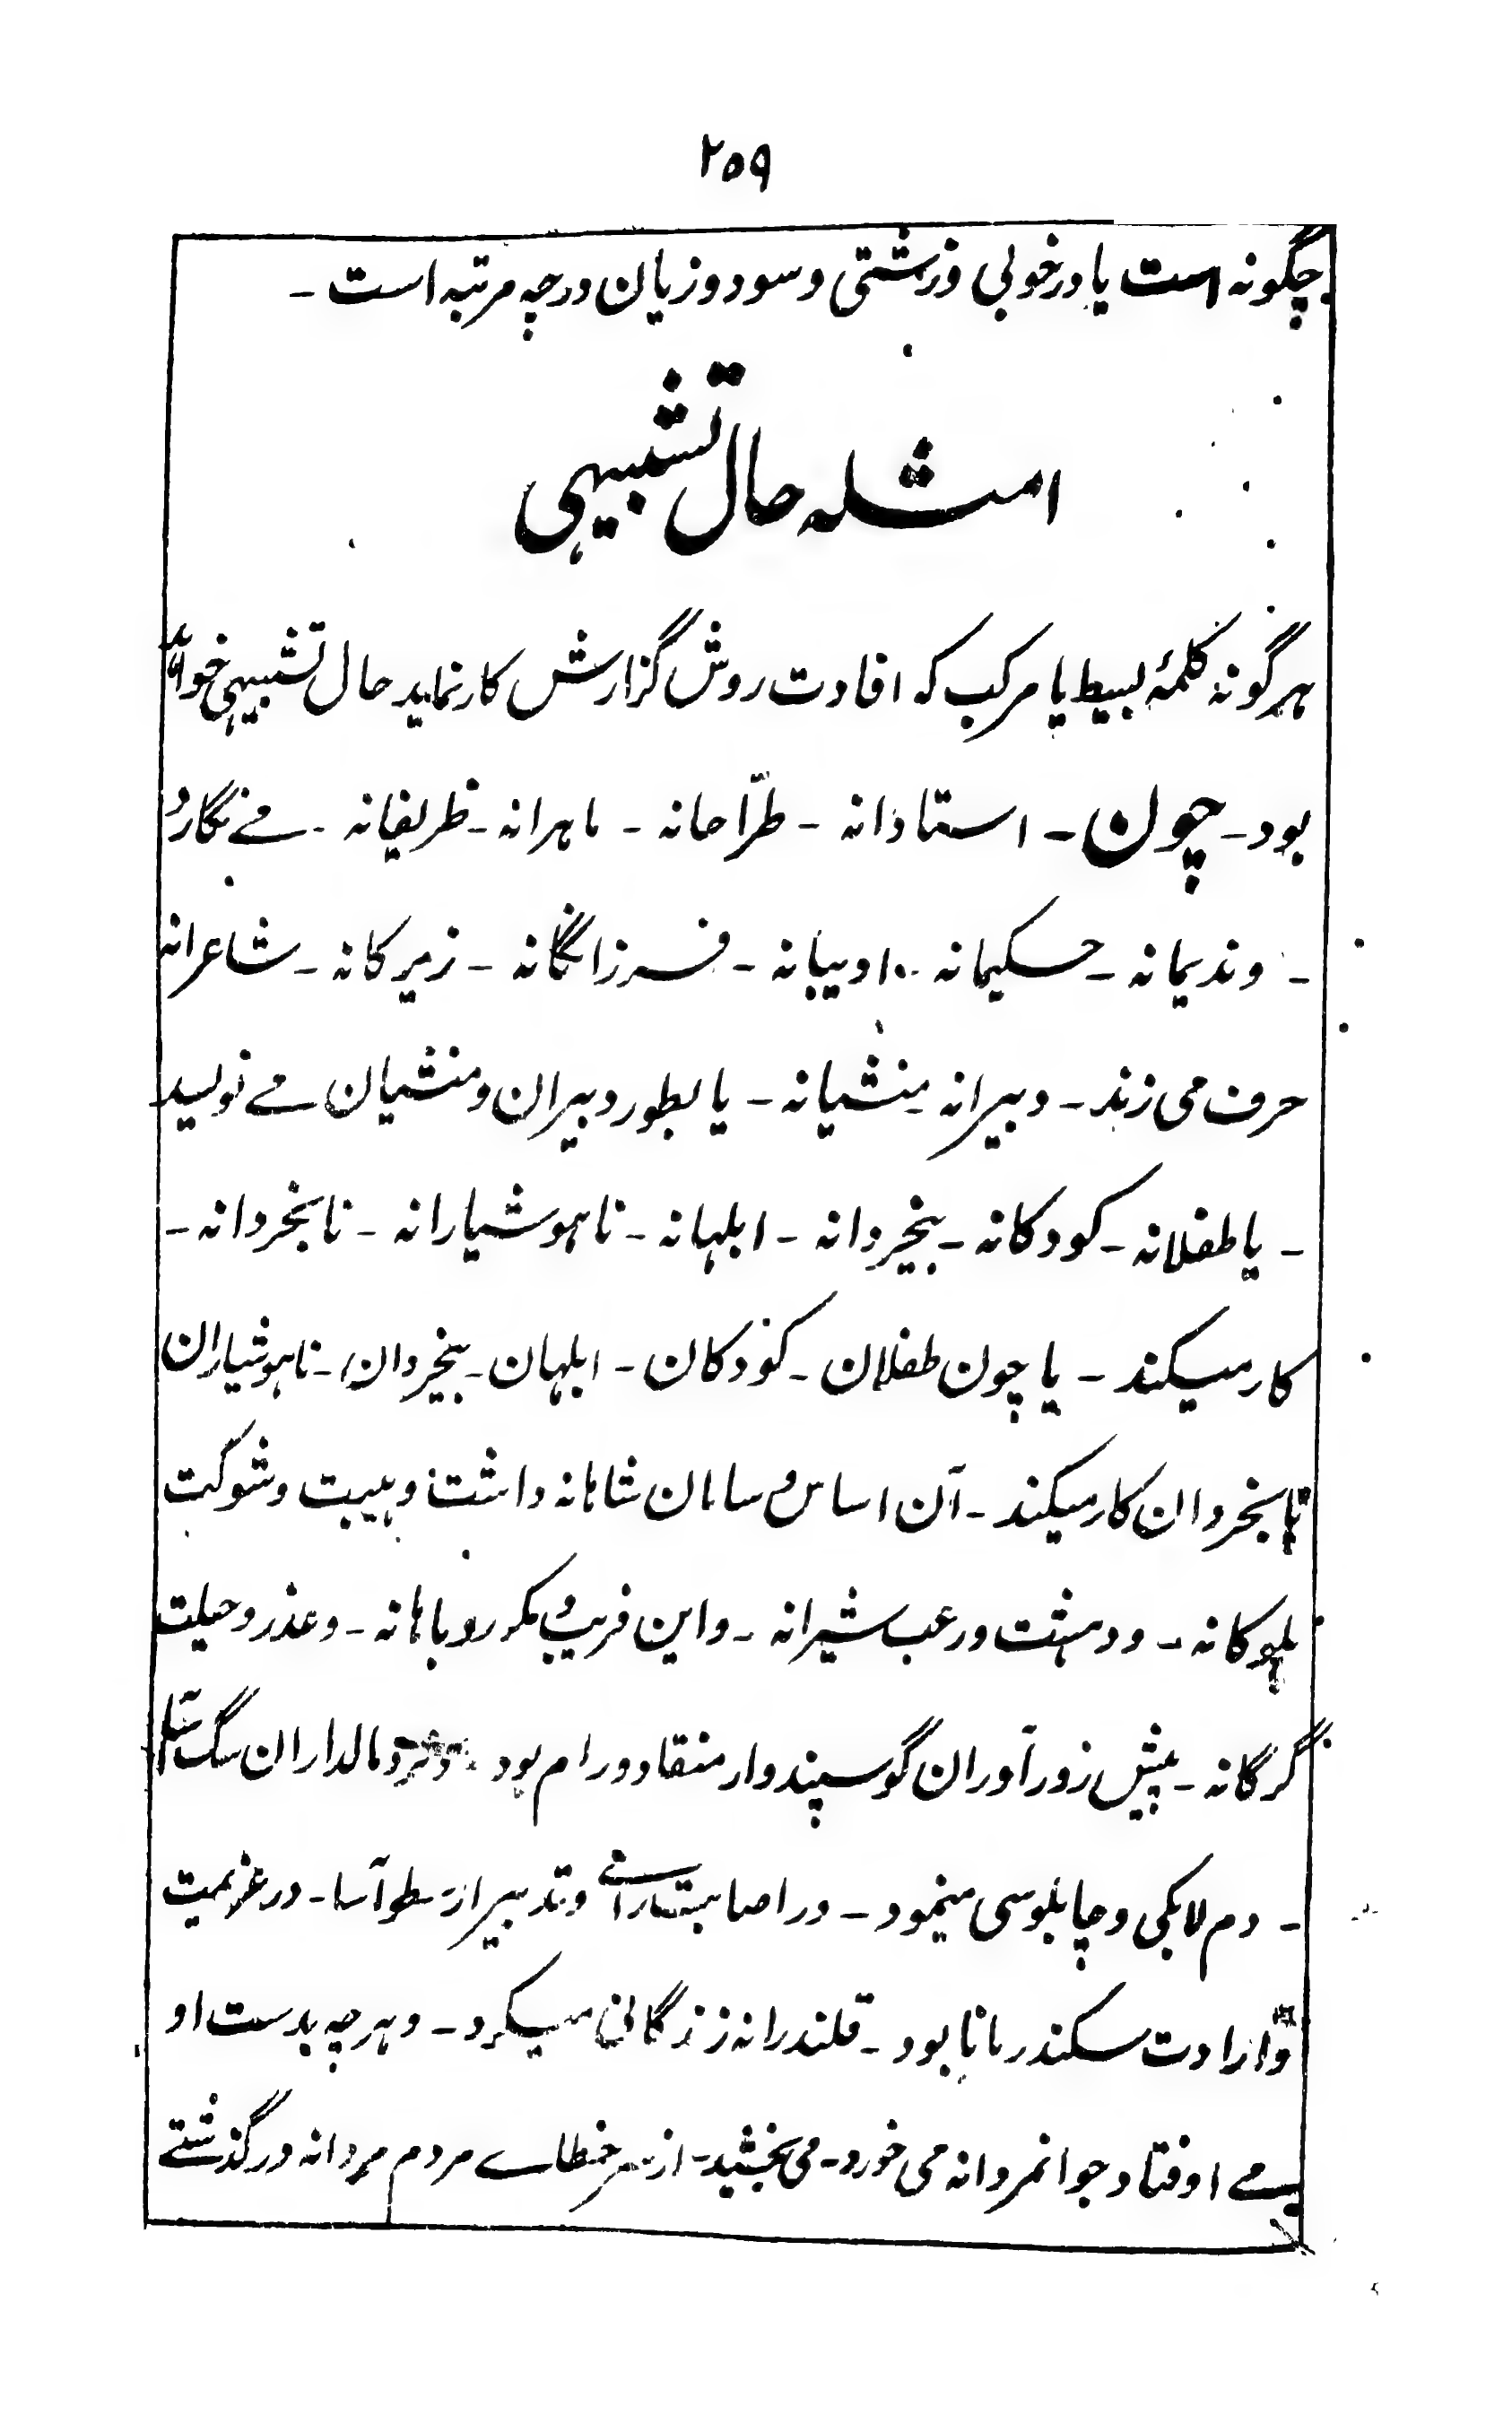 ۲۵۹
چگونه است یا در خوبی و زشتی و سود و زیان در چه مرتبه است ـ
امثله حال تشبیهی
هر گونه کلمهٔ بسیط یا مرکب که افادت روش گزارش کار نماید حال تشبیهی خواند
بود ـ چون ـ استادانه ـ طرّاحانه ـ ماهرانه ـ ظریفانه ـ مے نگارد
ـ و ندیمانه ـ حکیمانه ـ ادیبانه ـ فرزانگانه ـ زیرکانه ـ شاعرانه
حرف می زند ـ دبیرانه ـ منشیانه ـ یا بطور دبیران و منشیان مے نویسد
ـ یا طفلانه ـ کودکانه ـ بیخردانه ـ ابلهانه ـ ناهوشیارانه ـ نابخردانه ـ
کار میکند ـ یا چون طفلان ـ کودکان ـ ابلهان ـ بیخردان ـ ناهوشیاران
نابخردان کار میکند ـ آن اساس و سامان شاهانه داشت و هیبت و شوکت
ملوکانه ـ و دهشت و رعب شیرانه ـ و این فریب و مکر روباهانه ـ و عذر و حیلت
گرگانه ـ پیش زورآوران گوسپندوار منقاد و رام بود مالداران سگ آسا
ـ دم لابگی و چاپلوسی مینمود ـ در اصابت رائے و تدبیر ارسطو آسا ـ در عزیمت
و ارادت سکندر مانا بود ـ قلندرانه زندگانی میکرد ـ و هر چه بدست او
مے اوفتاد جوانمردانه می خورد ـ می بخشید ـ از سر خطاے مردم مردانه درگذشتے